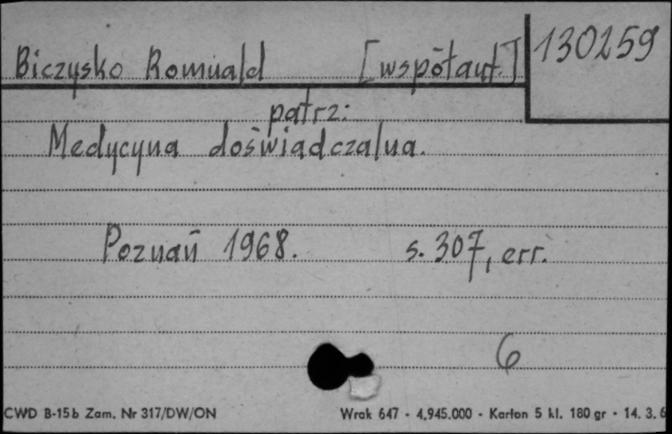 Biczysko Romuald [współaut.] 130259
patrz:
Medycyna doświadczalna.
Poznań 1968. s. 307, err.
6
CWD B-15b Zam. Nr 317/DW/ON Wrak 647 - 4.945.000 - Karton 5 kl. 180 gr - 14. 3. 6